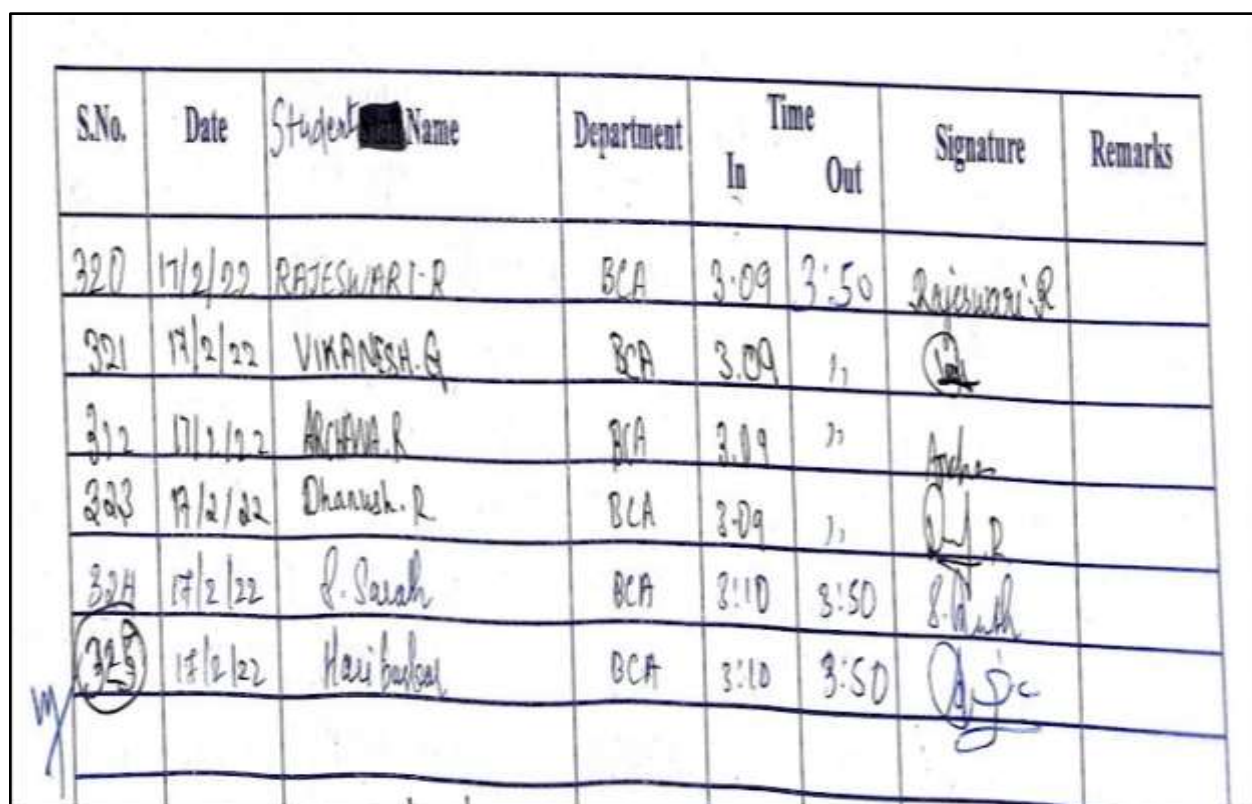 S.No. Date Student Name Department Time In Out Signature Remarks
320 17/2/22 RAJESWARI-R BCA 3:09 3:50 Rajeswari.R
321 17/2/22 VIKANESH.G BCA 3.09 ,,
322 17/2/22 ARCHANA.R BCA 3.09 ,,
323 17/2/22 Dhanush.R BCA 3.09 ,, R
324 17/2/22 Sarah BCA 3:10 3:50
325 17/2/22 Hari BCA 3:10 3:50